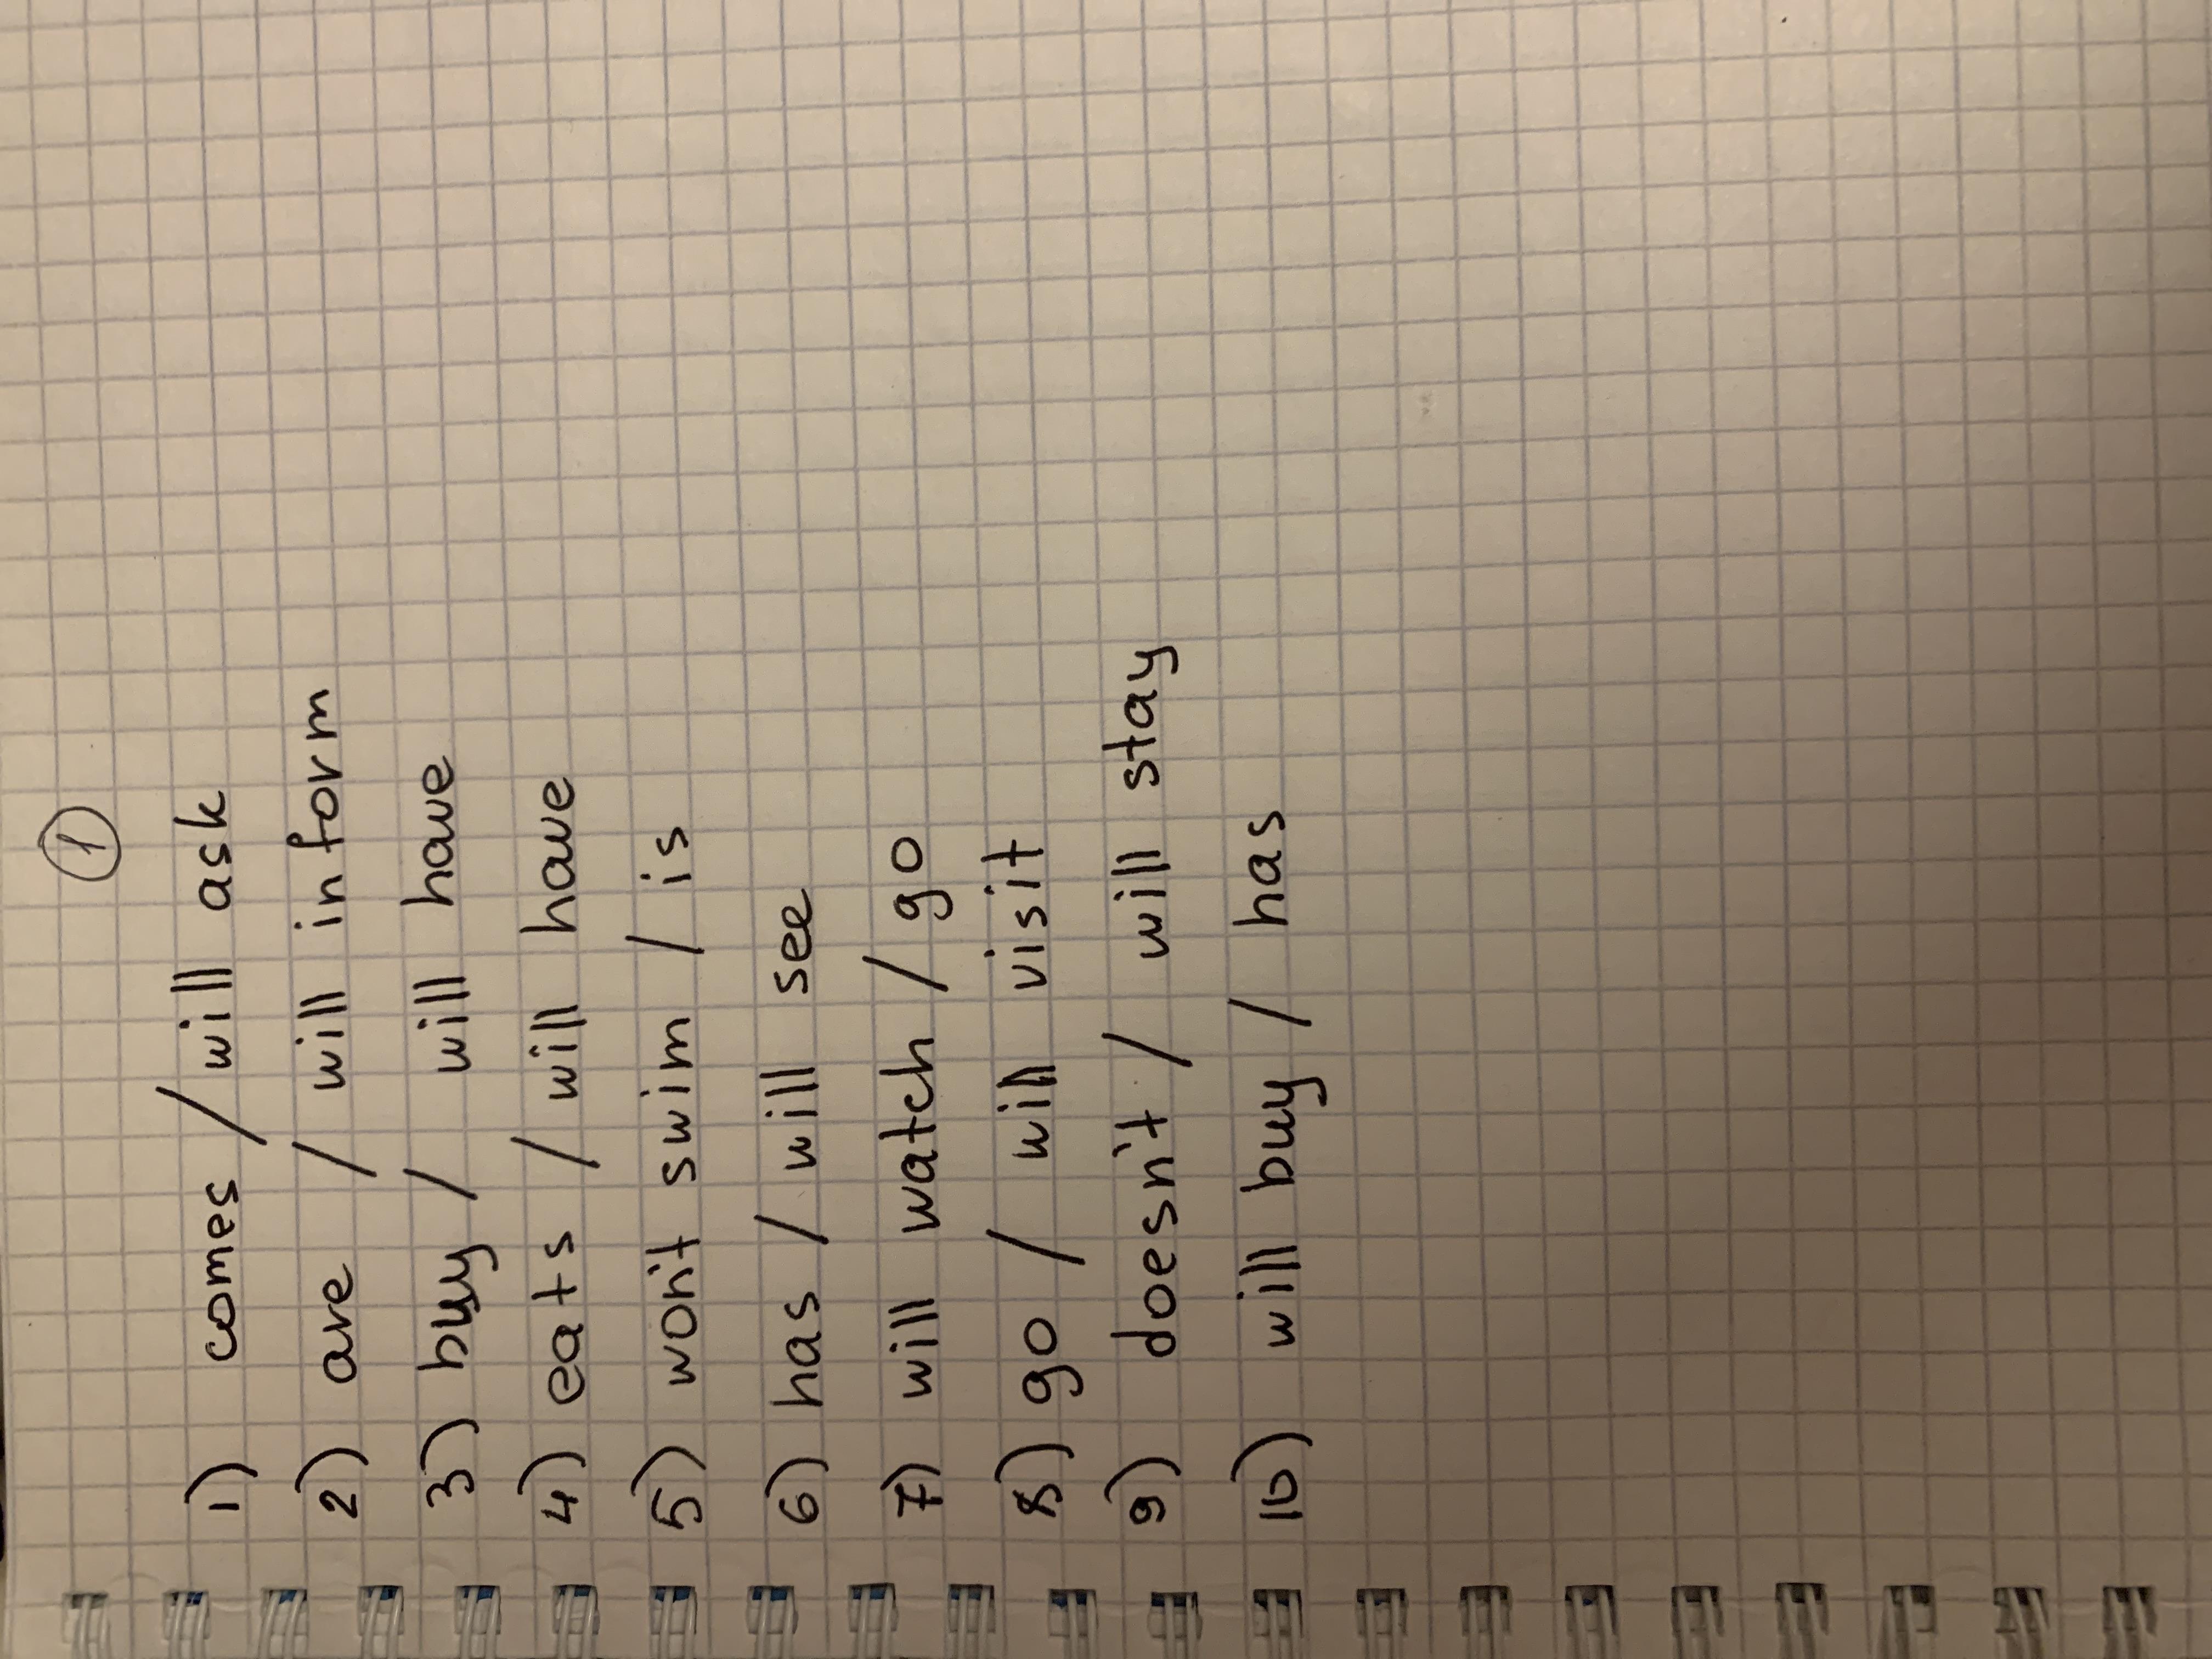 1
1) comes / will ask
2) are / will inform
3) buy / will have
4) eats / will have
5) won't swim / is
6) has / will see
7) will watch / go
8) go / will visit
9) doesn't / will stay
10) will buy / has